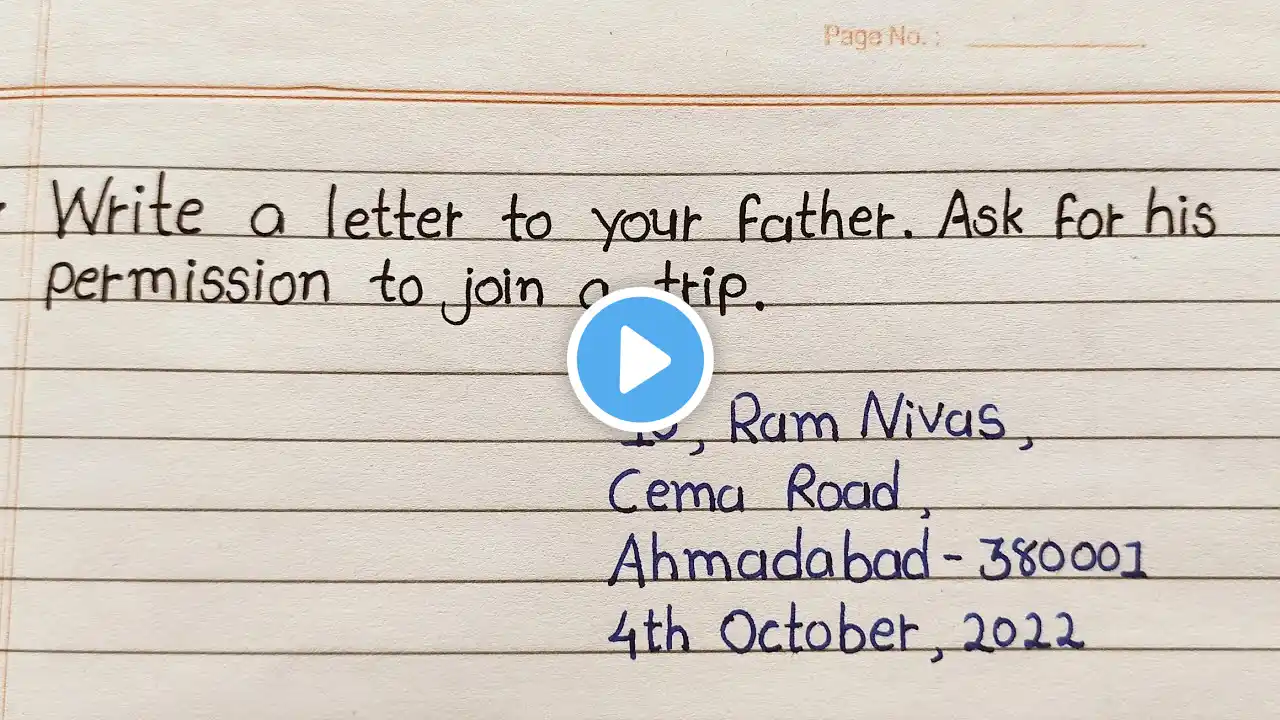 Page No. :
Write a letter to your father. Ask for his
permission to join a trip.
Ram Nivas,
Cema Road,
Ahmadabad - 380001
4th October, 2022